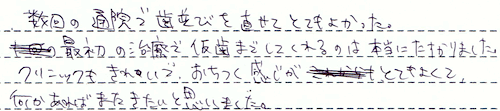 数回の通院で歯並びを直せてとてもよかった。
最初の治療で仮歯までしてくれるのは本当にたすかりました。
クリニックもきれいで、おちつく感じがとてもよくて、
何かあればまたきたいと思いました。